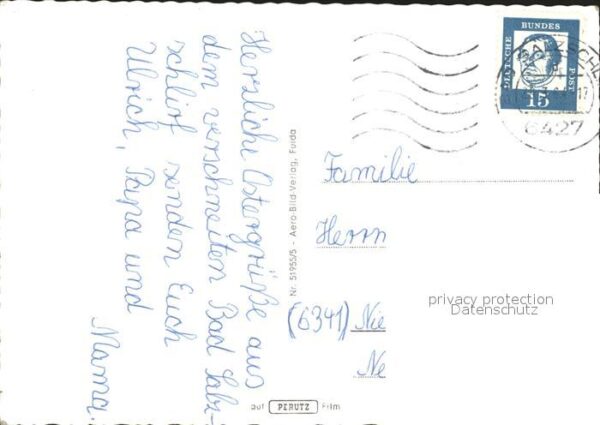 Herzliche Ostergrüße aus
dem verschneiten Bad Salz-
schlirf senden Euch
Ulrich, Papa und
Mama.
Nr. 51955/5 - Aero-Bild-Verlag, Fulda
DEUTSCHE BUNDES POST
15
6427
Familie
Herrn
(6341) Nie
Ne
privacy protection
Datenschutz
auf PERUTZ Film